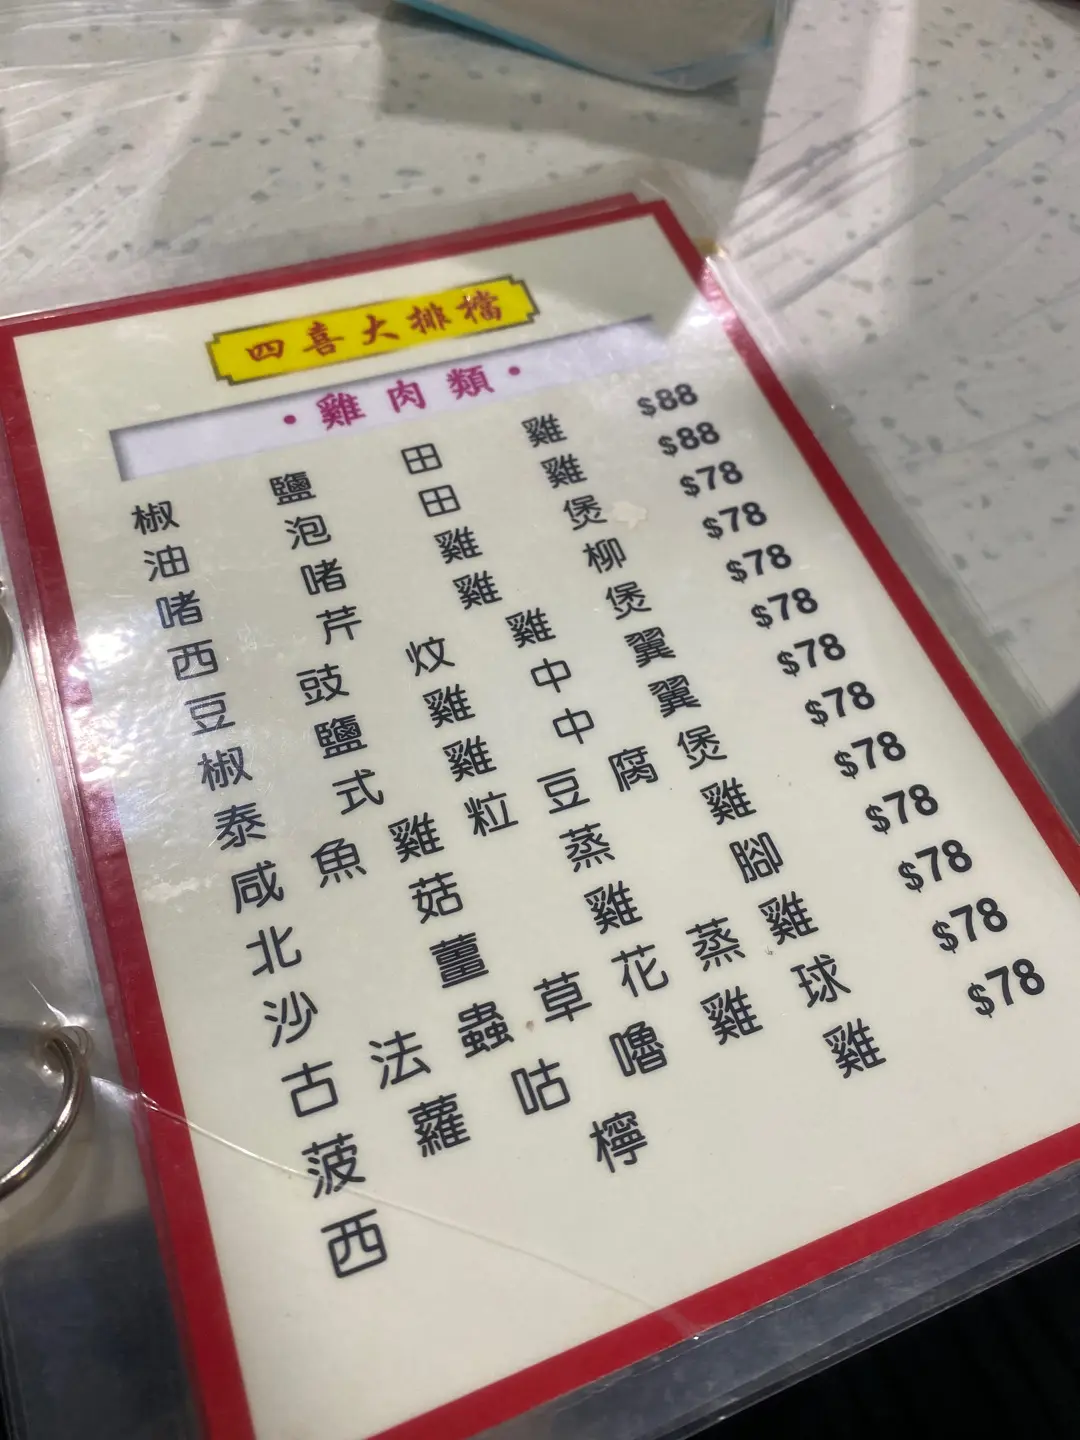 四喜大排檔
·雞肉類·
椒鹽田雞 $88
油泡田雞 $88
啫啫雞煲 $78
西芹雞柳 $78
豆豉炆雞煲 $78
椒鹽雞中翼 $78
泰式雞中翼 $78
咸魚雞粒豆腐煲 $78
北菇蒸雞 $78
沙薑雞腳 $78
古法蟲草花蒸雞 $78
菠蘿咕嚕雞球 $78
西檸雞 $78